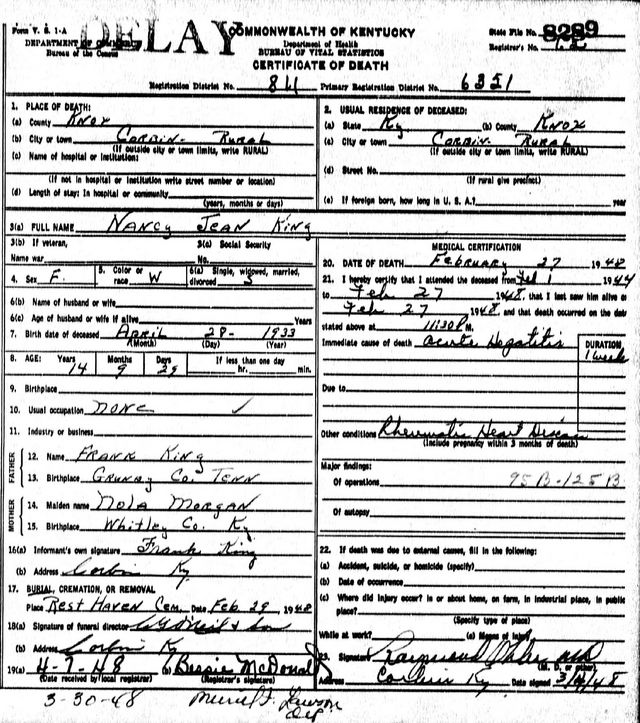 Form V. S. 1-A
DELAY
COMMONWEALTH OF KENTUCKY
State File No. 8289
DEPARTMENT OF COMMERCE
Bureau of the Census
Department of Health
BUREAU OF VITAL STATISTICS
Registrar's No.
CERTIFICATE OF DEATH
Registration District No. 84 Primary Registration District No. 6351
1. PLACE OF DEATH:
(a) County Knox
(b) City or town Corbin - Rural
(If outside city or town limits, write RURAL)
(c) Name of hospital or institution:
(If not in hospital or institution write street number or location)
(d) Length of stay: In hospital or community
(years, months or days)
2. USUAL RESIDENCE OF DECEASED:
(a) State Ky (b) County Knox
(c) City or town Corbin - Rural
(If outside city or town limits, write RURAL)
(d) Street No.
(If rural give precinct)
(e) If foreign born, how long in U. S. A.? year
3(a) FULL NAME Nancy Jean King
3(b) If veteran, 3(c) Social Security
Name war No.
4. Sex F. 5. Color or race W 6(a) Single, widowed, married, divorced S
6(b) Name of husband or wife
6(c) Age of husband or wife if alive Years
7. Birth date of deceased April 28- 1933
(Month) (Day) (Year)
8. AGE: Years Months Days If less than one day
14 9 29 hr. min.
9. Birthplace
10. Usual occupation None ✓
11. Industry or business
FATHER
12. Name Frank King
13. Birthplace Grundy Co. Tenn
MOTHER
14. Maiden name Nola Morgan
15. Birthplace Whitley Co. Ky
16(a) Informant's own signature Frank King
(b) Address Corbin Ky.
17. BURIAL, CREMATION, OR REMOVAL
Place Rest Haven Cem. Date Feb. 29, 1948
18(a) Signature of funeral director & Son
(b) Address Corbin Ky
19(a) 4-7-48 (b) Bessie McDonald
(Date received by local registrar) (Registrar's signature)
3-30-48
MEDICAL CERTIFICATION
20. DATE OF DEATH February 27 1948
21. I hereby certify that I attended the deceased from Feb 1 1944
to Feb 27 1948, that I last saw him alive on
Feb 27 1948, and that death occurred on the date
stated above at 11:30 P.M.
Immediate cause of death Acute Hepatitis
DURATION
1 week
Due to
Other conditions Rheumatic Heart Disease
(Include pregnancy within 3 months of death)
Major findings:
Of operations 95B-125B
Of autopsy
22. If death was due to external causes, fill in the following:
(a) Accident, suicide, or homicide (specify)
(b) Date of occurrence
(c) Where did injury occur? in or about home, on farm, in industrial place, in public
place?
(Specify type of place)
While at work? (e) Means of injury
23. Signature Raymond
(M. D. or other)
Address Corbin Ky Date signed